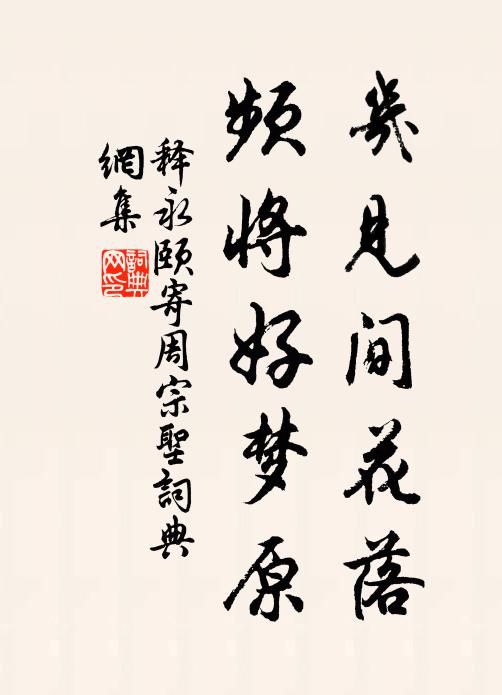 幾見间花落
频將好梦原
释永颐寄周宗聖詞典
網集
詞典网印